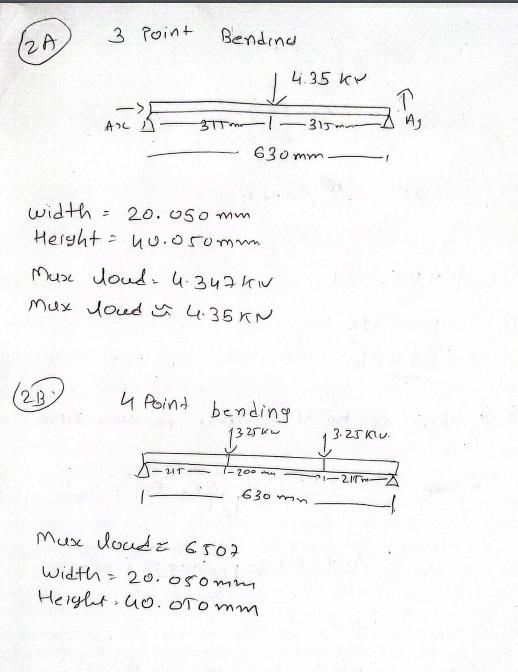 2A
3 Point Bending
4.35 KN
Ax
315mm
315mm
Ay
630mm
width = 20.050 mm
Height = 40.050mm
Max load = 4.347 KN
Max load ≈ 4.35 KN
2B.
4 Point bending
3.25KN
3.25KN.
215
200 mm
215m
630 mm
Max load ≈ 6507
Width = 20.050mm
Height = 40.050mm